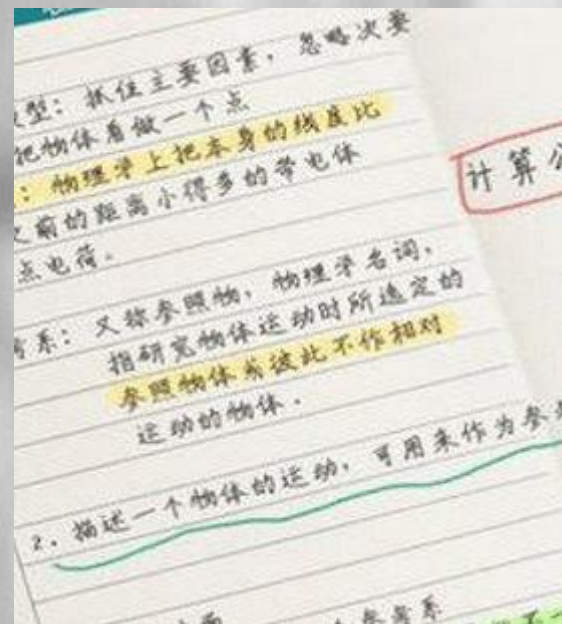 型：抓住主要因素，忽略次要
把物体看做一个点
：物理学上把本身的线度比
之前的距离小得多的带电体
点电荷。
考系：又称参照物，物理学名词，
指研究物体运动时所选定的
参照物体或彼此不作相对
运动的物体．
2．描述一个物体的运动，可用来作为参考
参考系
不一
计算公